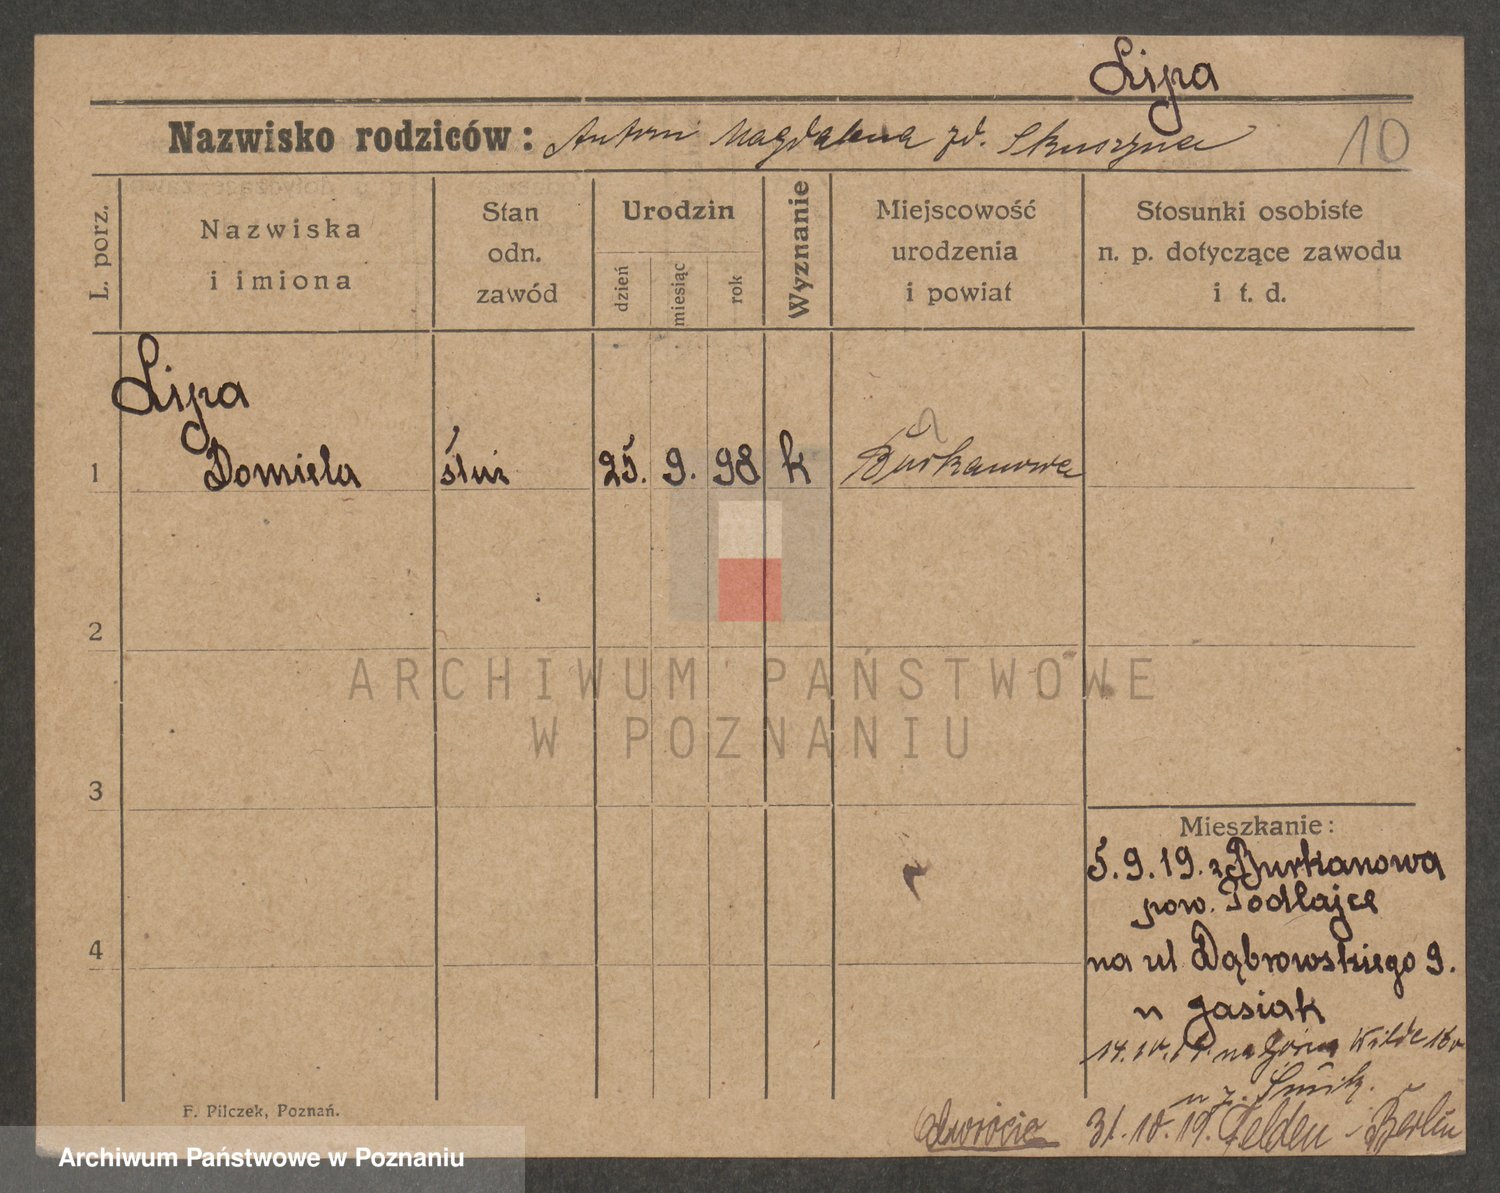 Lipa
Nazwisko rodziców: Antoni Magdalena zd. Skuszyna
10
L. porz.
Nazwiska
i imiona
Stan
odn.
zawód
Urodzin
dzień
miesiąc
rok
Wyznanie
Miejscowość
urodzenia
i powiat
Stosunki osobiste
n. p. dotyczące zawodu
i t. d.
Lipa
1 Domiela służ 25. 9. 98 k Burkanowa
2
ARCHIWUM PAŃSTWOWE
W POZNANIU
3
Mieszkanie:
5.9.19. z Burkanowa
pow. Podhajce
4
na ul Dąbrowskiego 9.
u Jasiak
14.10.19. na Górna Wilde
u z.
31.10.19. Velden Berlin
F. Pilczek, Poznań.
Archiwum Państwowe w Poznaniu